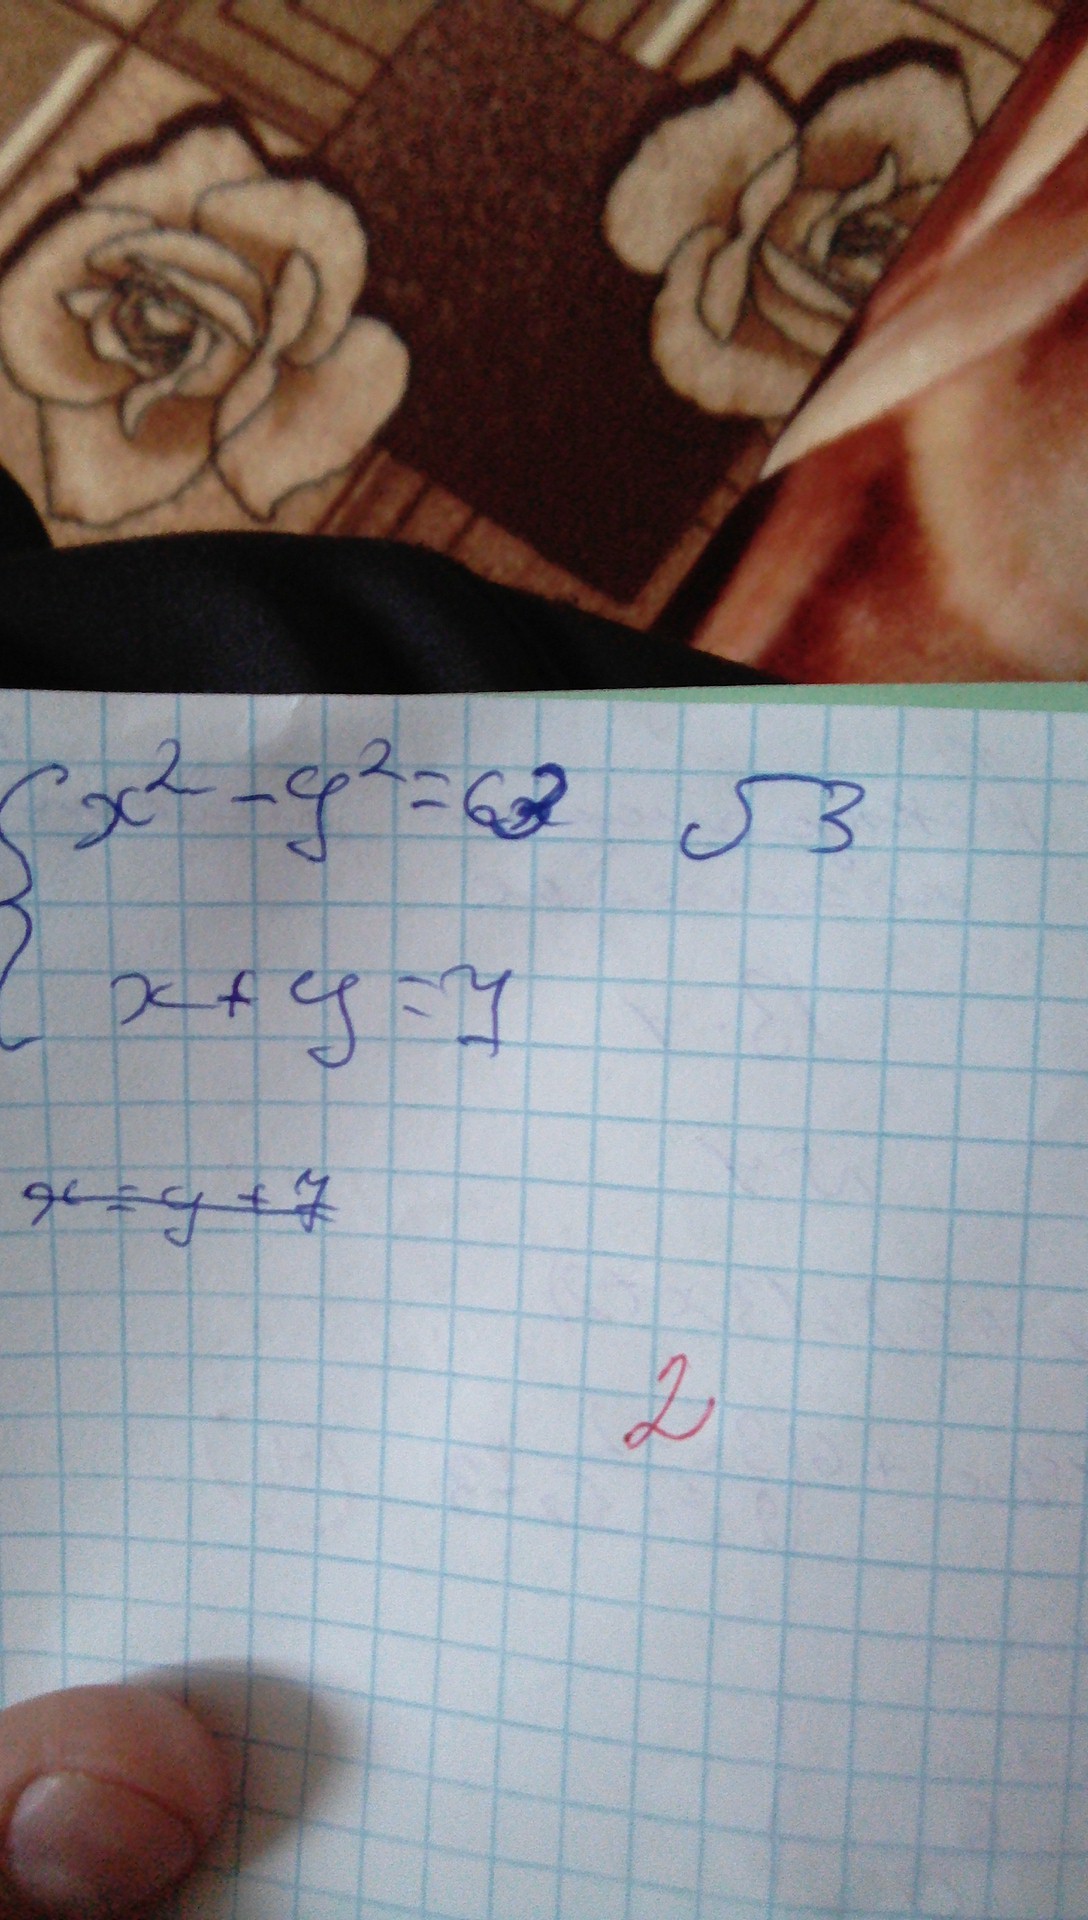 x² - y² = 62 √3
x + y = 7
x = y + 7
2